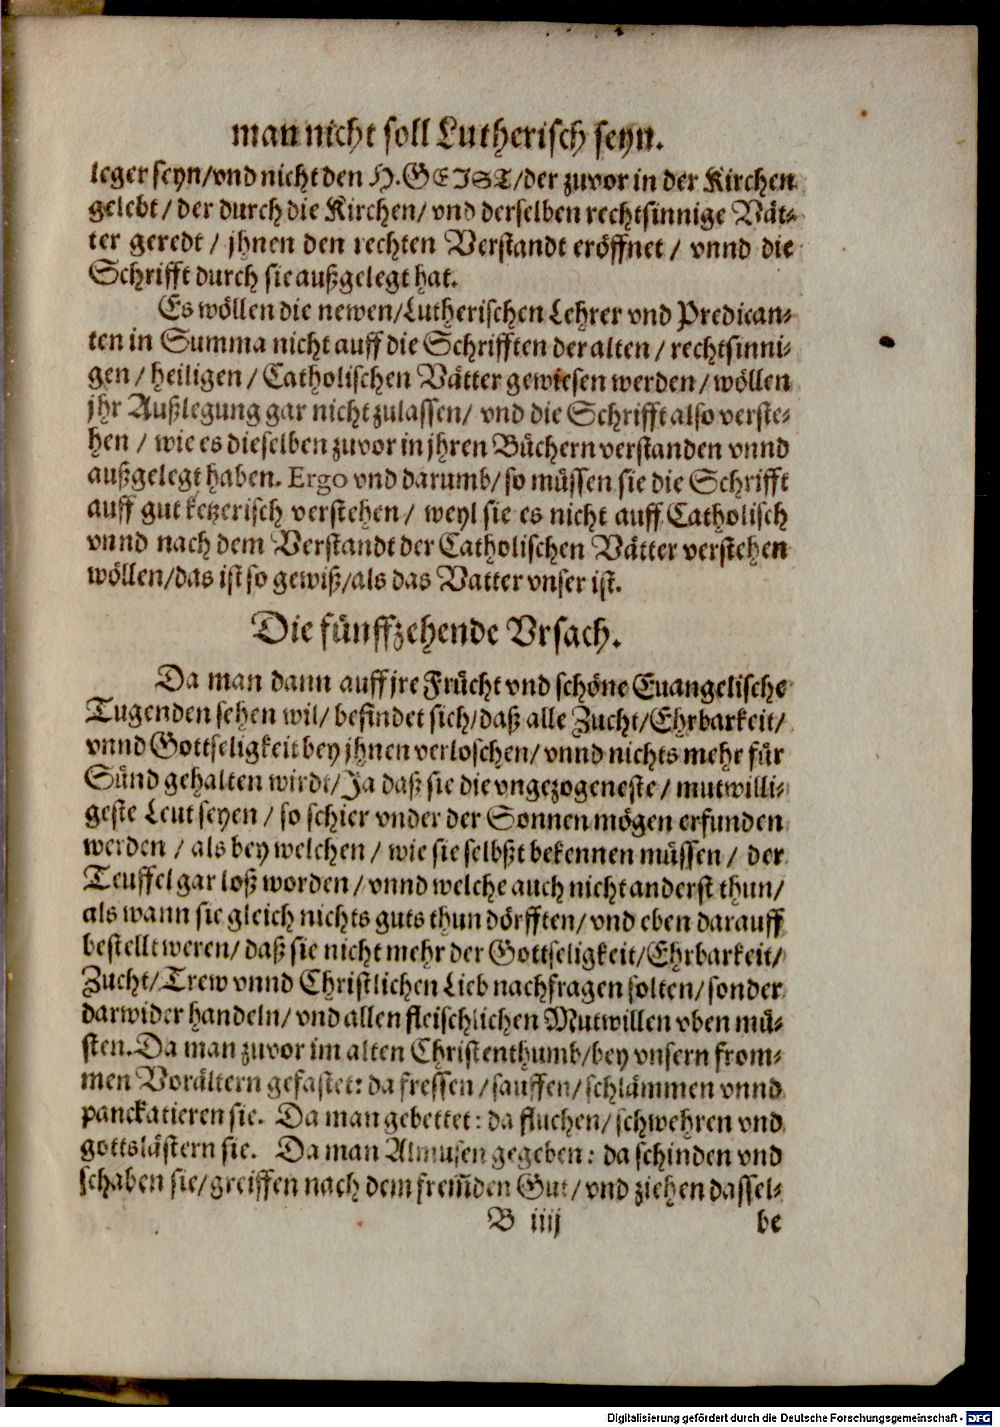 man nicht soll Lutherisch seyn.
leger seyn/vnd nicht den H. GEIST/der zuvor in der Kirchen
gelebt/der durch die Kirchen/vnd derselben rechtsinnige Vät-
ter geredt/jhnen den rechten Verstandt eröffnet/vnnd die
Schrifft durch sie außgelegt hat.
Es wöllen die newen/Lutherischen Lehrer vnd Predican-
ten in Summa nicht auff die Schrifften der alten/rechtsinni-
gen/heiligen/Catholischen Vätter gewiesen werden/wöllen
jhr Außlegung gar nicht zulassen/vnd die Schrifft also verste-
hen/wie es dieselben zuvor in jhren Büchern verstanden vnnd
außgelegt haben. Ergo vnd darumb/so müssen sie die Schrifft
auff gut ketzerisch verstehen/weyl sie es nicht auff Catholisch
vnnd nach dem Verstandt der Catholischen Vätter verstehen
wöllen/das ist so gewiß/als das Vatter vnser ist.
Die fünffzehende Vrsach.
Da man dann auff jre Frücht vnd schöne Euangelische
Tugenden sehen wil/befindet sich/daß alle Zucht/Ehrbarkeit/
vnnd Gottseligkeit bey jhnen verloschen/vnnd nichts mehr für
Sünd gehalten wirdt/Ja daß sie die vngezogeneste/mutwilli-
geste Leut seyen/so schier vnder der Sonnen mögen erfunden
werden/als bey welchen/wie sie selbßt bekennen müssen/der
Teuffel gar loß worden/vnnd welche auch nicht anderst thun/
als wann sie gleich nichts guts thun dörfften/vnd eben darauff
bestellt weren/daß sie nicht mehr der Gottseligkeit/Ehrbarkeit/
Zucht/Trew vnnd Christlichen Lieb nachfragen solten/sonder
darwider handeln/vnd allen fleischlichen Mutwillen vben mü-
sten. Da man zuvor im alten Christenthumb/bey vnsern from-
men Vorältern gefastet: da fressen/sauffen/schlämmen vnnd
panckatieren sie. Da man gebettet: da fluchen/schwehren vnd
gottslästern sie. Da man Almusen gegeben: da schinden vnd
schaben sie/greiffen nach dem frem̃den Gut/vnd ziehen dassel-
B iiij be
Digitalisierung gefördert durch die Deutsche Forschungsgemeinschaft - DFG